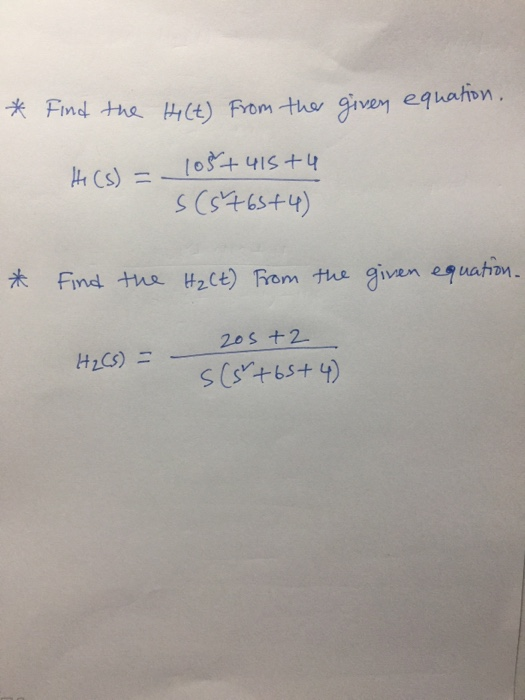 * Find the H₁(t) From the given equation.
H₁(s) = 10s² + 41s + 4
s(s²+6s+4)
* Find the H₂(t) From the given equation.
H₂(s) = 20s + 2
s(s²+6s+4)